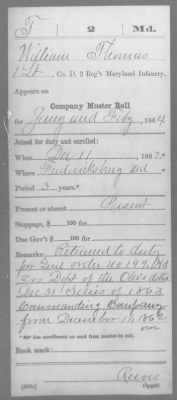 T 2 Md.
William Thomas
1 Lt, Co. D, 2 Reg't Maryland Infantry.
Appears on
Company Muster Roll
for Jany and Feby, 1864
Joined for duty and enrolled:
When Dec 11, 1862.*
Where Fredericksburg Md
Period 3 years.*
Present or absent Present
Stoppage, $ 100 for
Due Gov't $ 100 for
Remarks: Returned to duty
per Genl order No 199. Hd
Qrs Dept of the Ohio dated
Dec 31 Series of 1863
Commanding Company
from December 1863
*See enrollment from muster-in roll.
Book mark:
Reeves
(358c) Copyist.